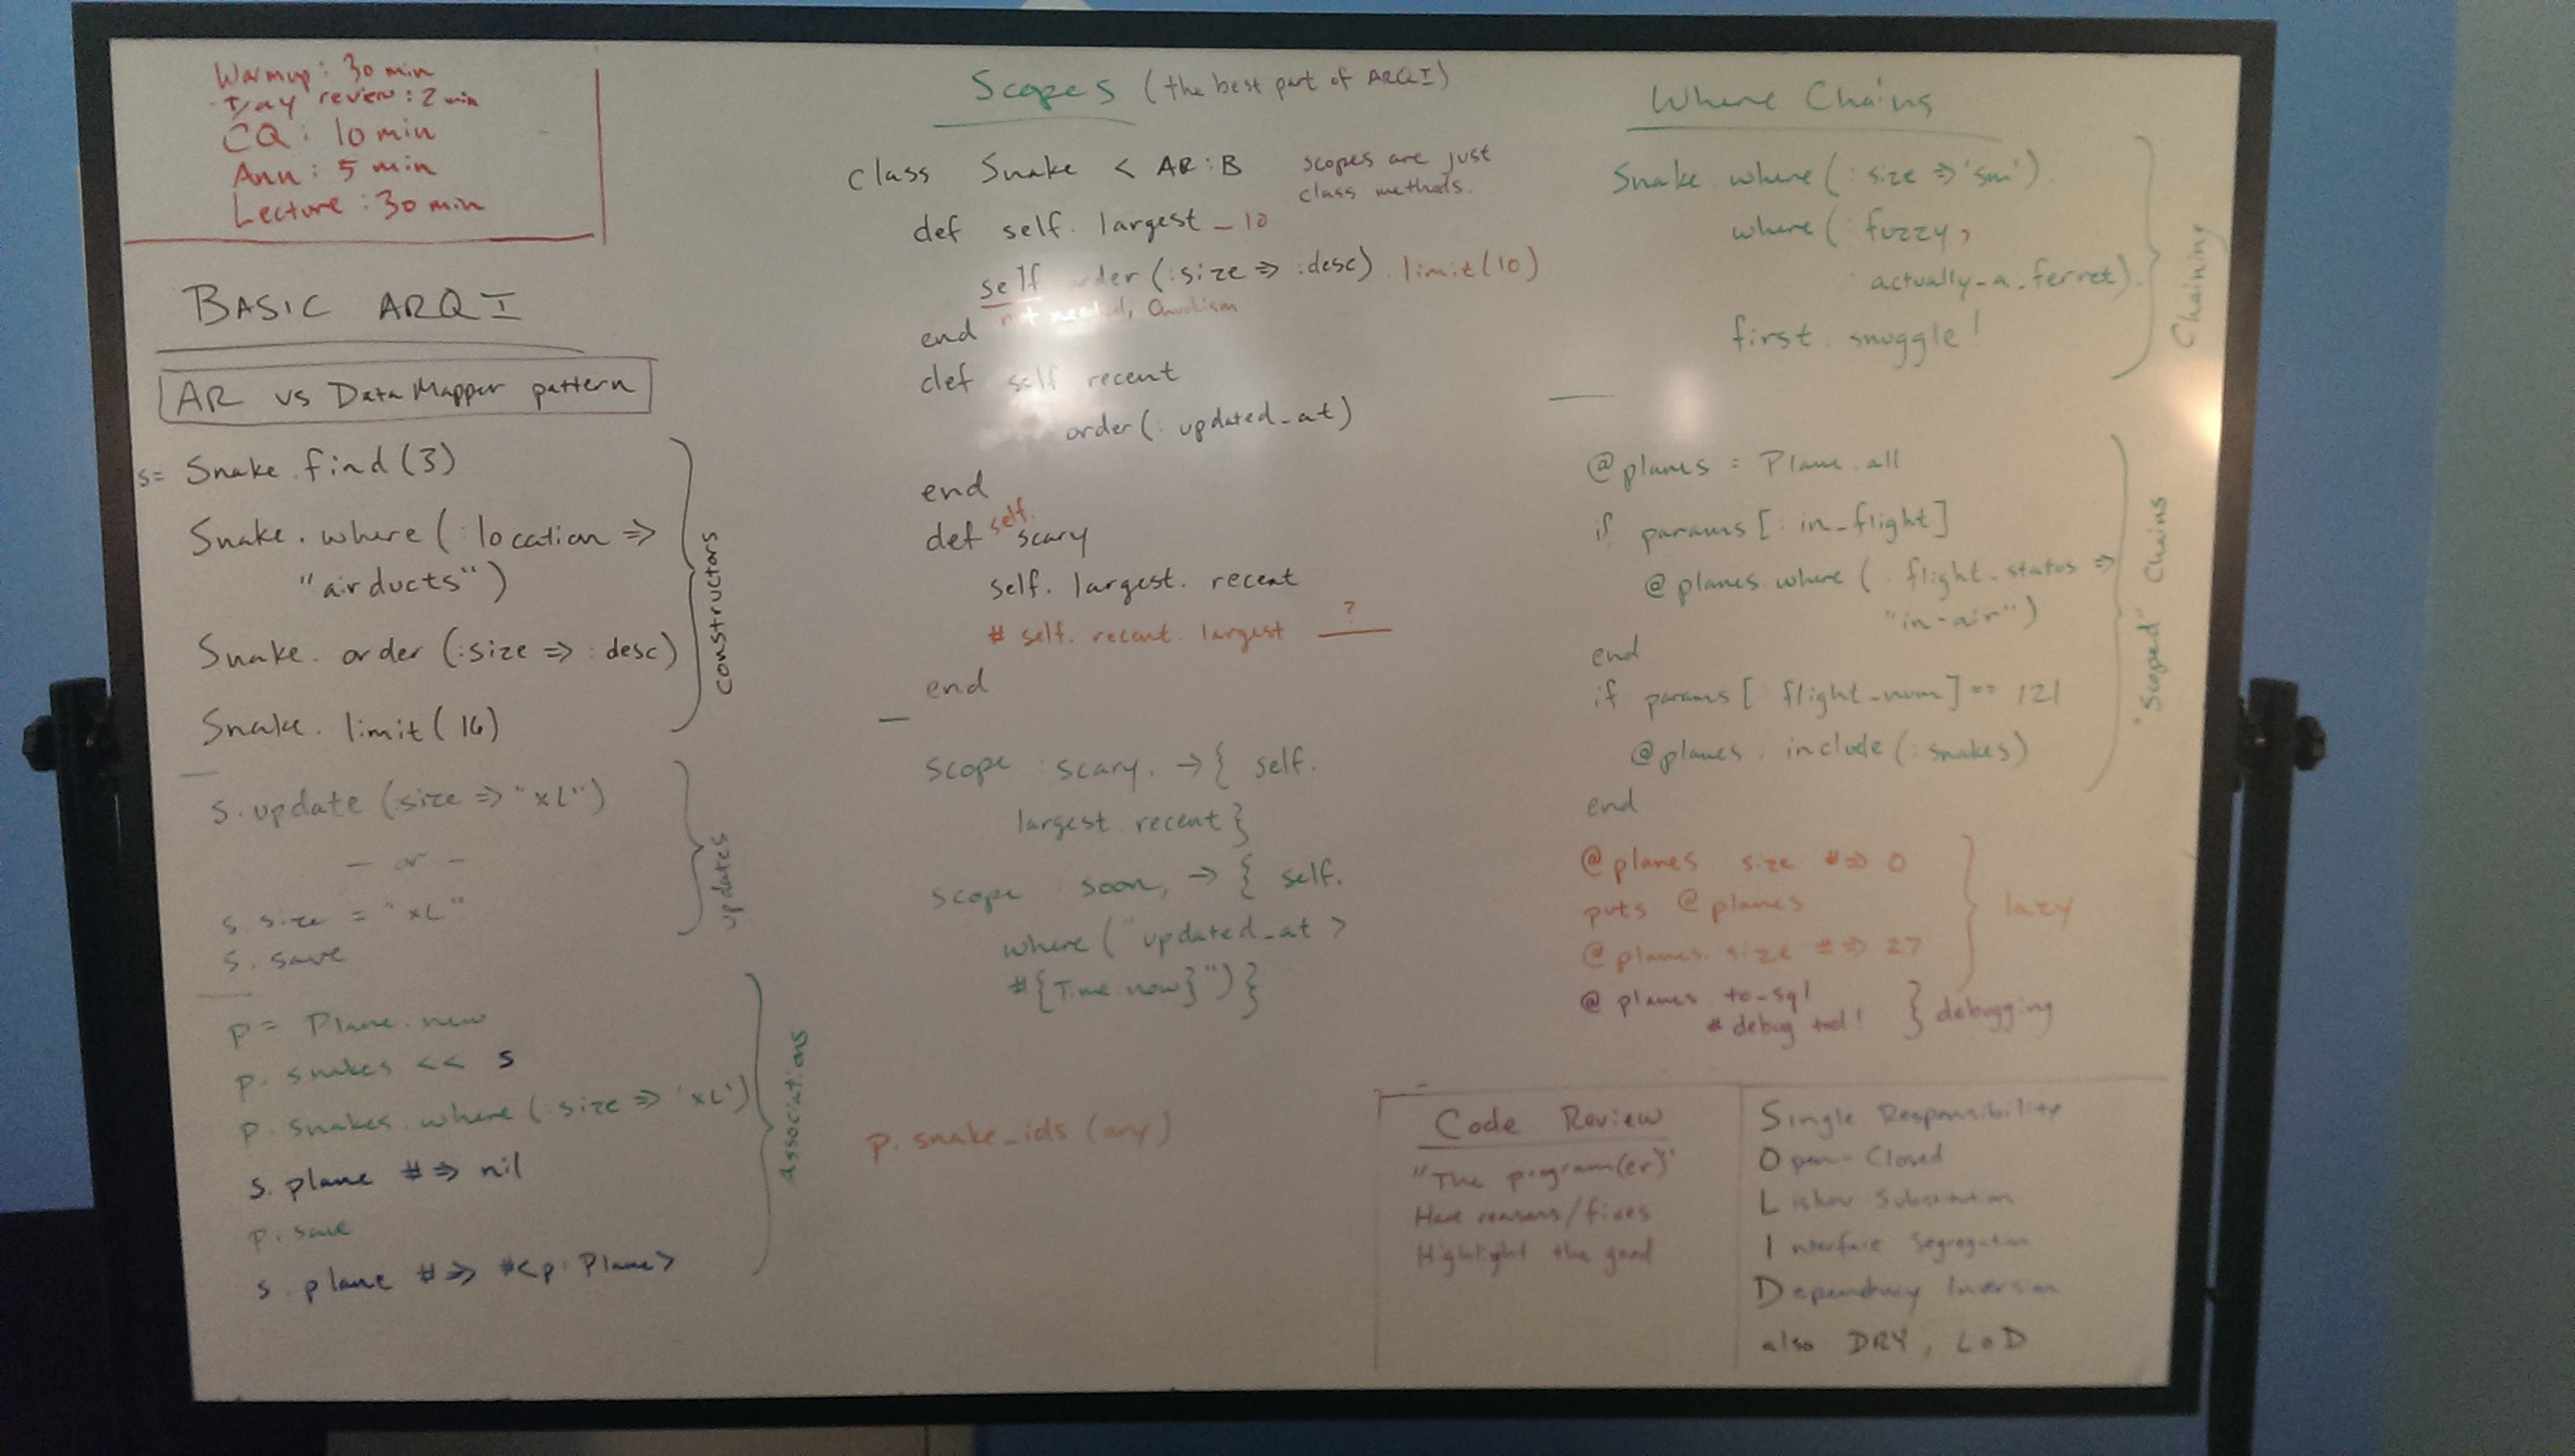 Warmup: 30 min
I/ay review: 2 min
CQ: 10 min
Ann: 5 min
Lecture: 30 min
BASIC ARQI
AR vs DataMapper pattern
s= Snake.find(3)
Snake.where(:location =>
"airducts")
Snake.order(:size => :desc)
Snake.limit(16)
constructors
s.update(:size => "XL")
- or -
s.size = "XL"
s.save
updates
p = Plane.new
p.snakes << s
p.snakes.where(:size => 'XL')
s.plane #=> nil
p.save
s.plane #=> #<p:Plane>
Associations
Scopes (the best part of ARQI)
class Snake < AR:B
scopes are just
class methods.
def self.largest_10
self order(:size => :desc).limit(10)
not needed, Chuckism
end
def self recent
order(:updated_at)
end
def self.scary
self.largest.recent
# self.recent.largest ?
end
scope :scary, -> { self.
largest.recent }
scope :soon, -> { self.
where("updated_at >
#{Time.now}")}
p.snake_ids (any)
Where Chains
Snake.where(:size => 'sm').
where(:fuzzy,
:actually_a_ferret).
first.snuggle!
Chaining
@planes = Plane.all
if params[:in_flight]
@planes.where(:flight_status =>
"in-air")
end
if params[:flight_num] == 121
@planes.include(:snakes)
end
"Scoped" Chains
@planes.size #=> 0
puts @planes
@planes.size #=> 27
lazy
@planes.to_sql
# debug tool!
debugging
Code Review
"The program(er)"
Have reasons/fixes
Highlight the good
Single Responsibility
Open-Closed
Liskov Substitution
Interface Segregation
Dependency Inversion
also DRY, LoD